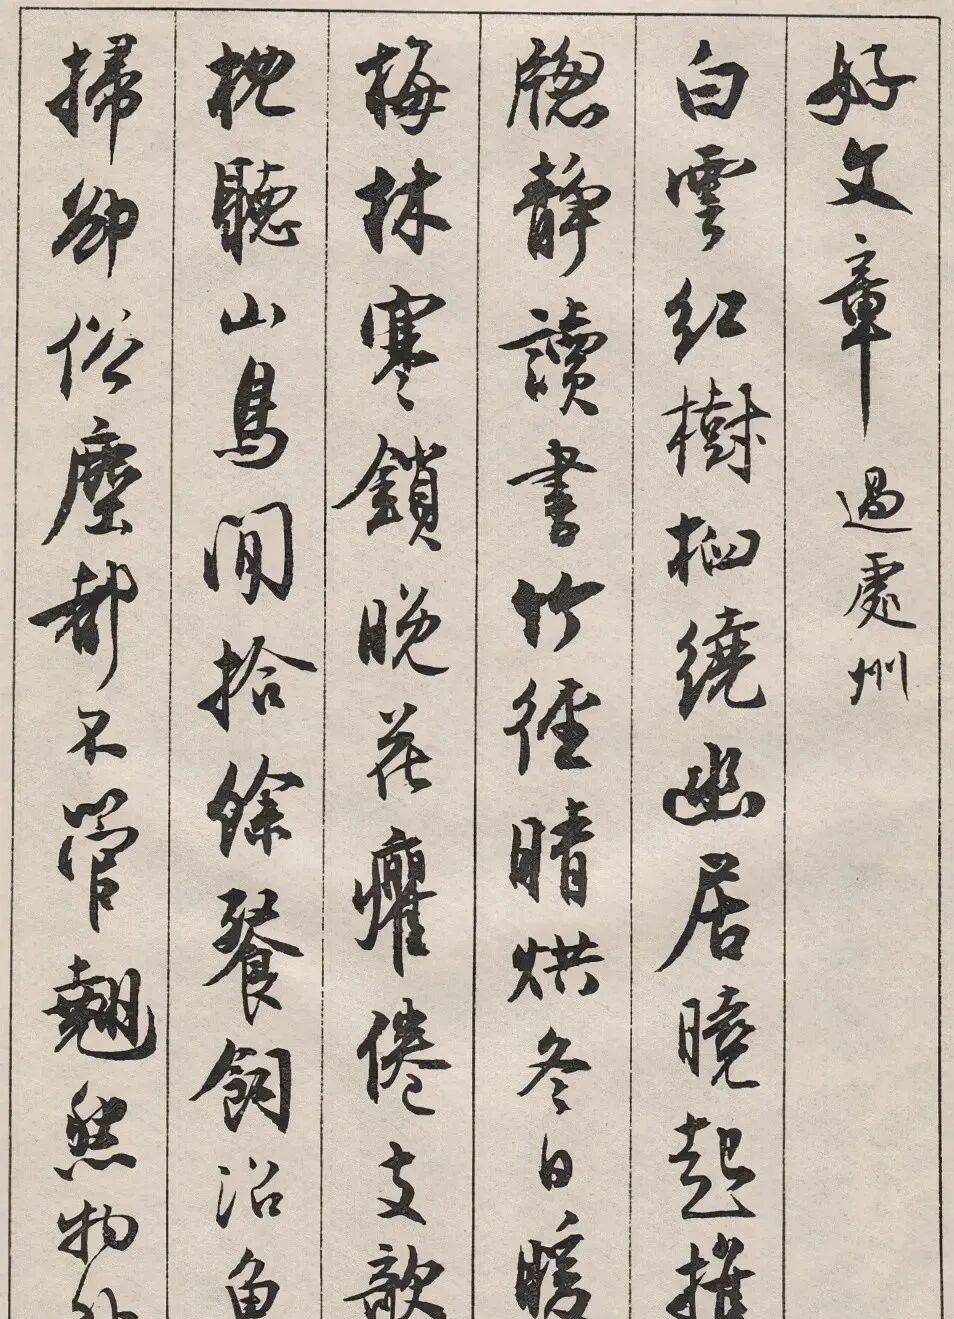 好文章 過處州
白雲紅樹栖繞幽居曉起推
牕靜讀書竹徑晴烘冬日暖
梅林寒鎖晚花癯倦支欹
枕聽山鳥閒拾餘餐飼沼魚
掃卻俗塵都不管翹然物外